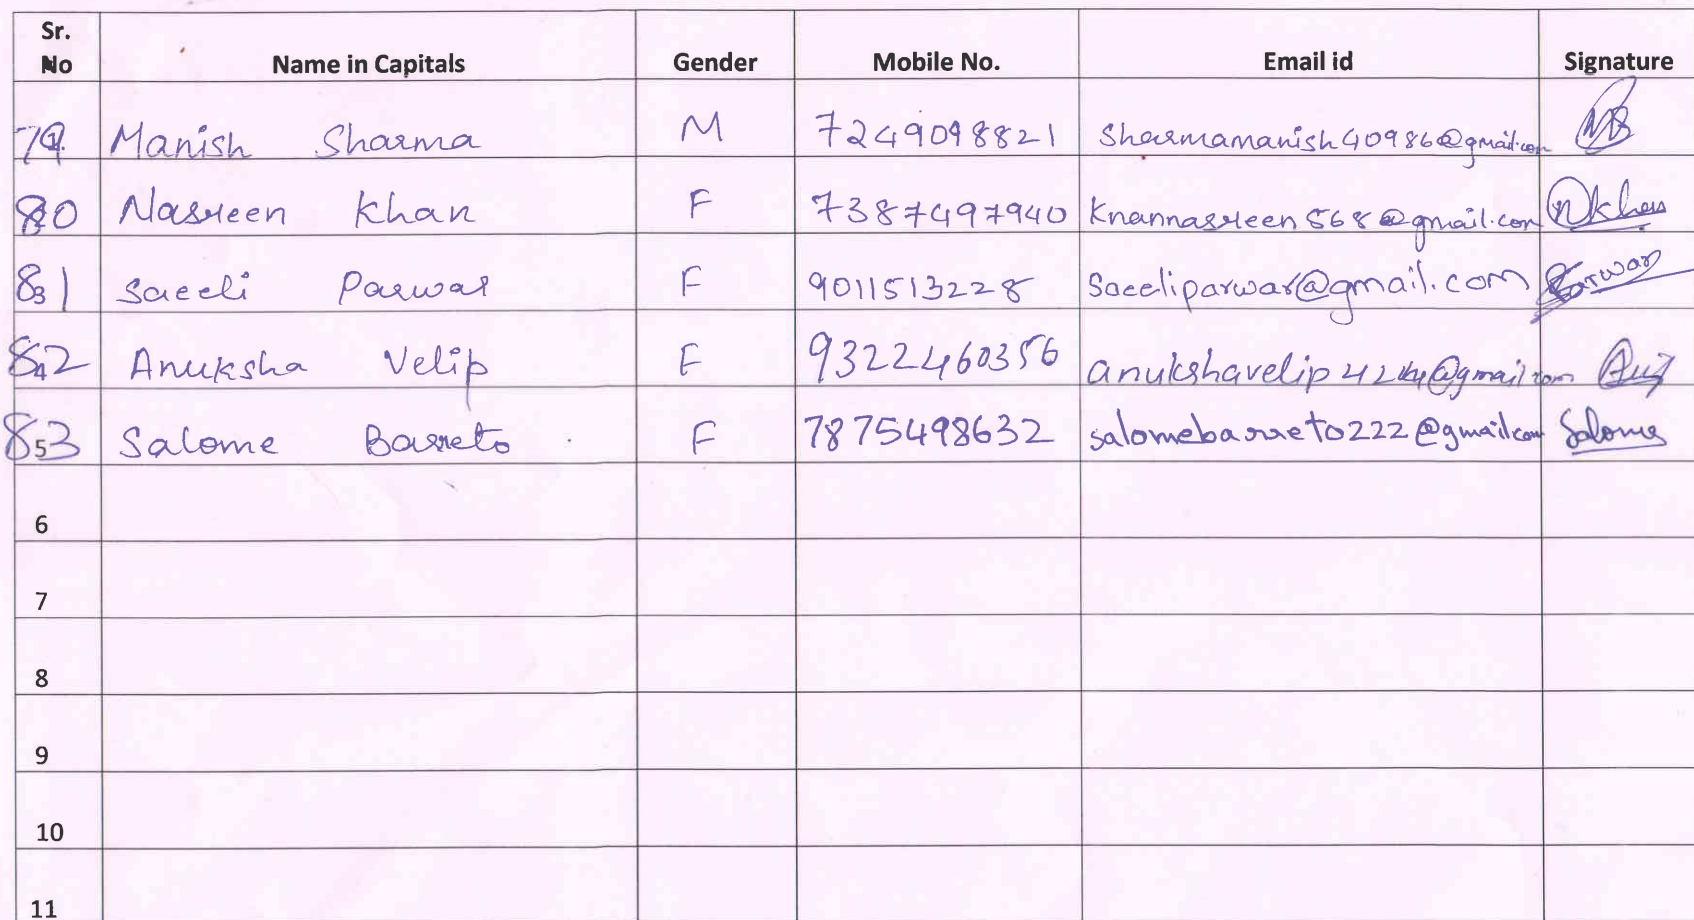 Sr. No Name in Capitals Gender Mobile No. Email id Signature
79 Manish Sharma M 7249098821 sharmamanish40986@gmail.com
80 Nasreen Khan F 7387497940 Knannasreen568@gmail.com NKhan
81 Saeeli Parwar F 9011513228 Saeeliparwar@gmail.com Parwar
82 Anuksha Velip F 9322460356
83 Salome Barreto F 7875498632 salomebarreto222@gmail.com Salome
6
7
8
9
10
11